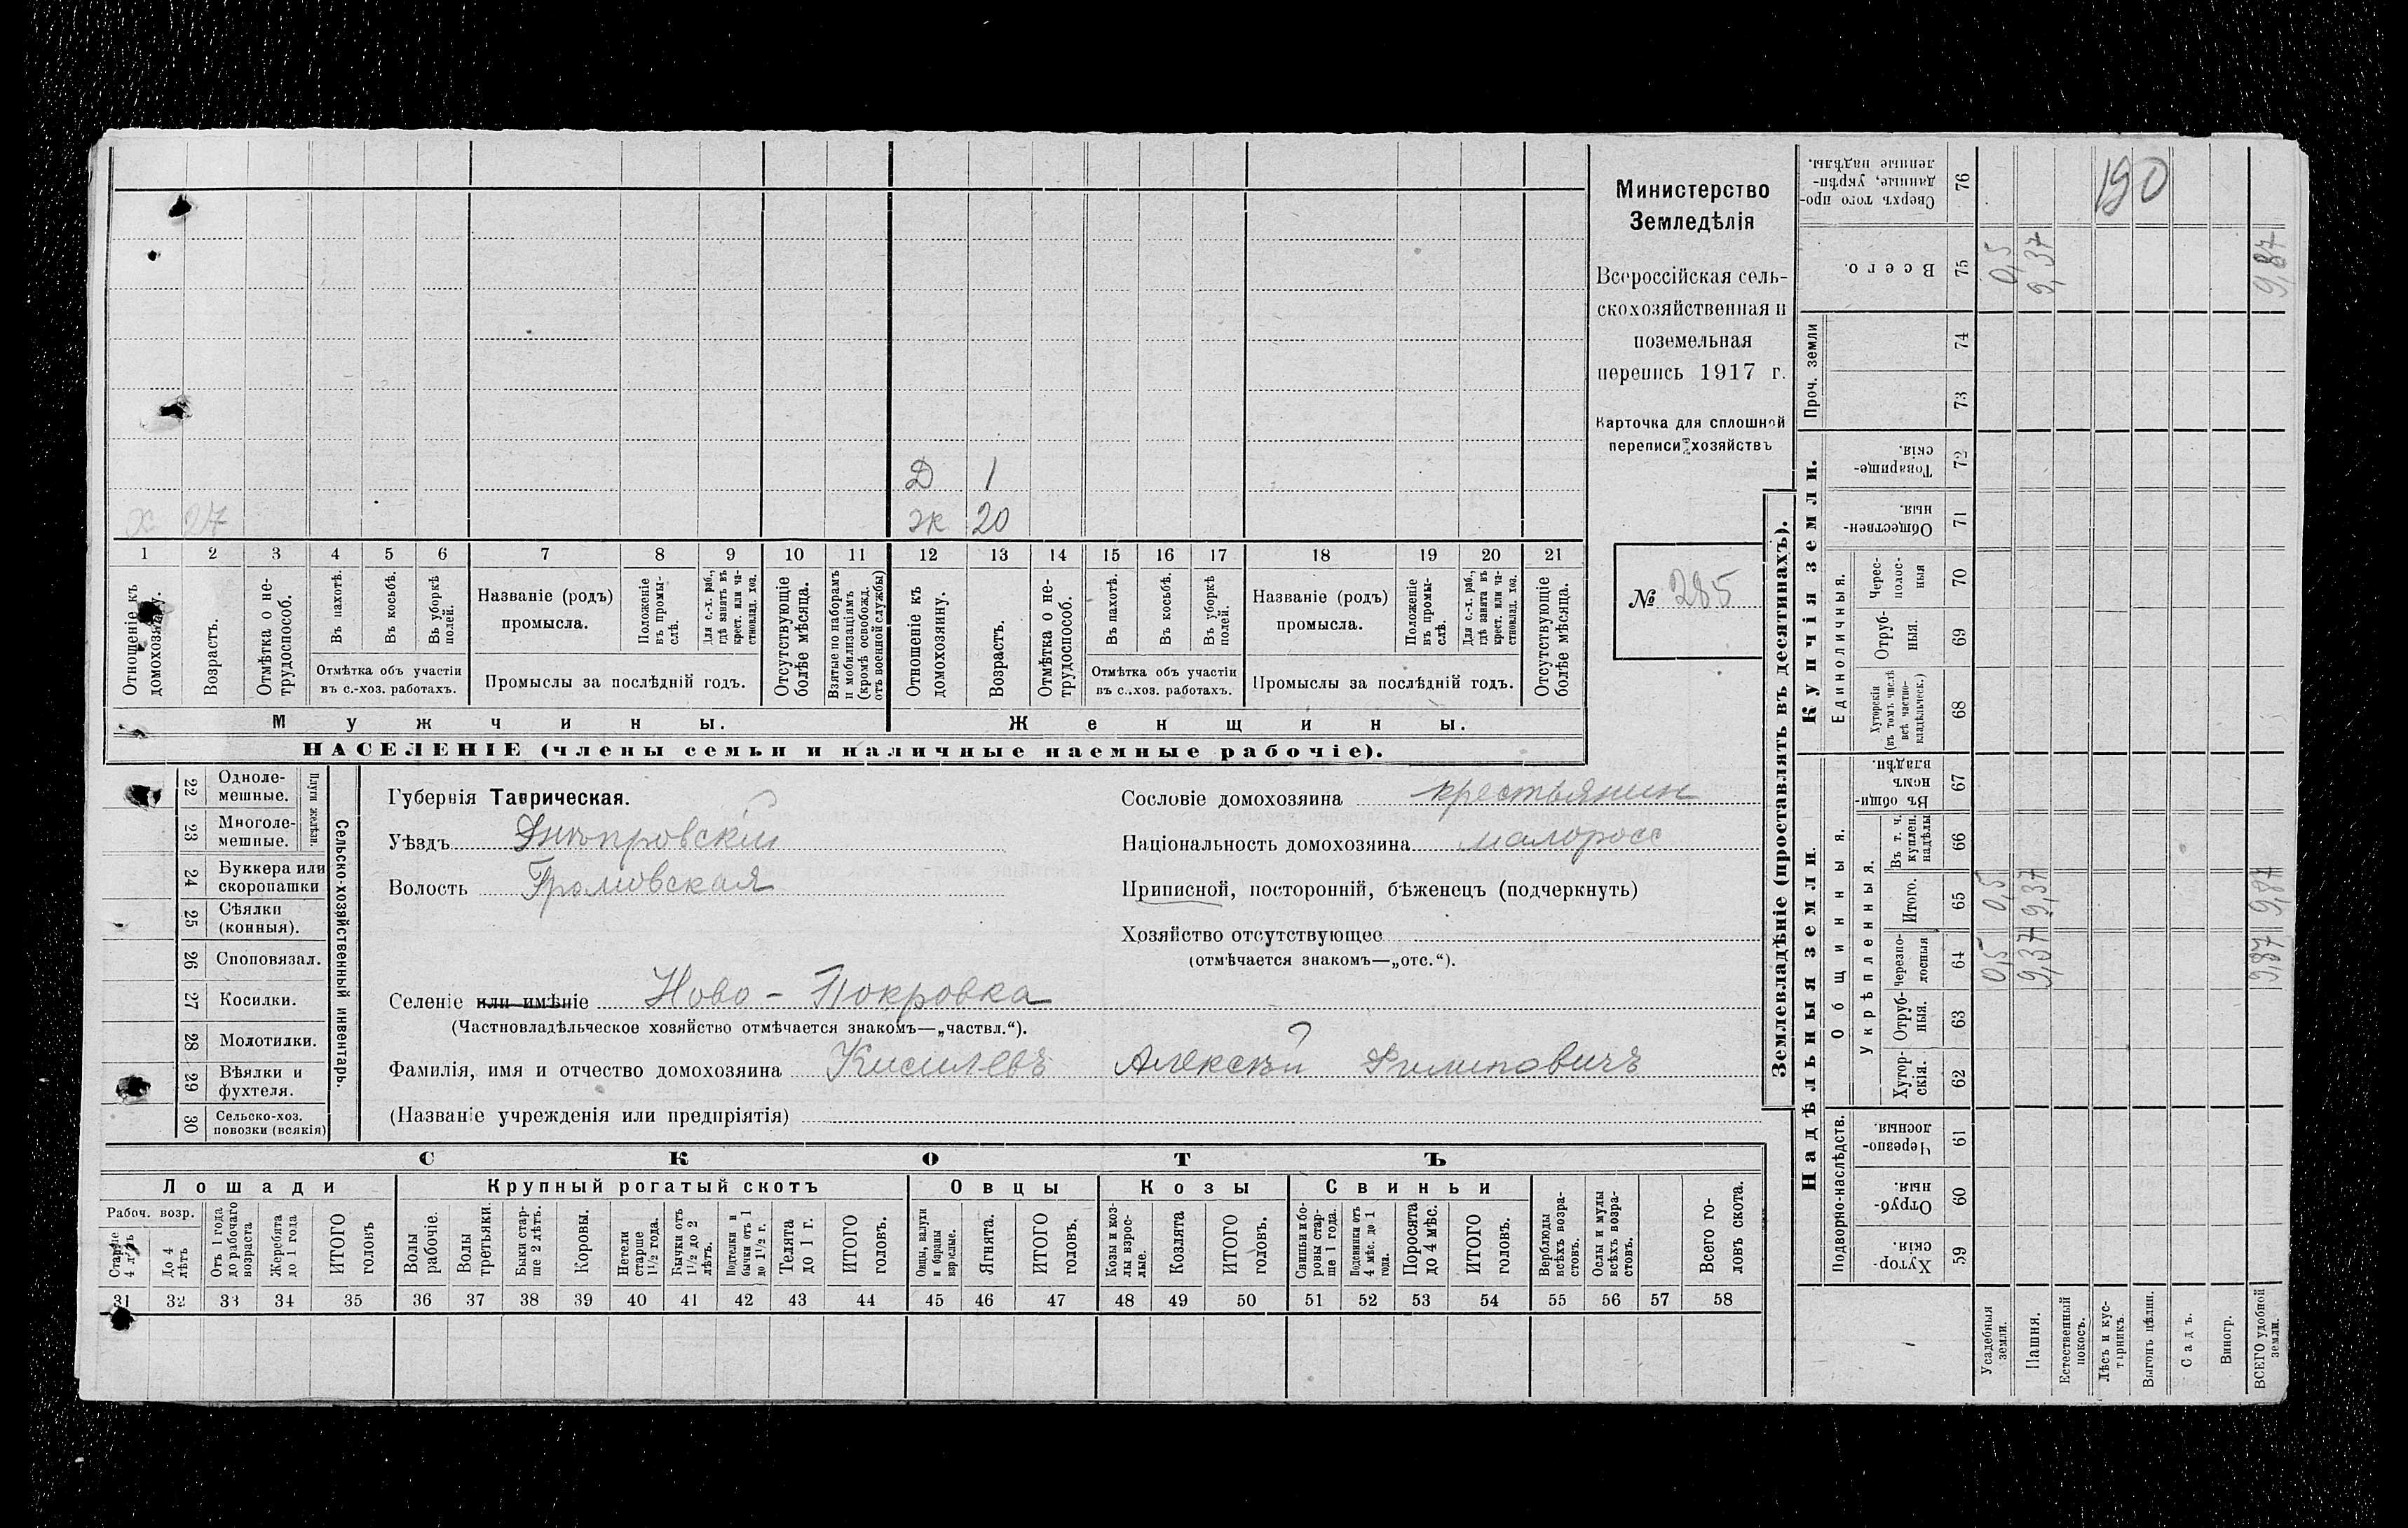 Министерство
Земледѣлія
Всероссійская сель-
скохозяйственная и
поземельная
перепись 1917 г.
Карточка для сплошной
переписи хозяйствъ
№ 285
Д 1
х 27 ж 20
1 2 3 4 5 6 7 8 9 10 11 12 13 14 15 16 17 18 19 20 21
Отношеніе къ домохозяину.
Возрастъ.
Отмѣтка о не-
трудоспособ.
Въ пахотѣ.
Въ косьбѣ.
Въ уборкѣ
полей.
Отмѣтка объ участіи
въ с.-хоз. работахъ.
Названіе (родъ)
промысла.
Положеніе
въ промы-
слѣ.
Для с.-х. раб.,
гдѣ занятъ въ
крест. или ча-
стновлад. хоз.
Промыслы за послѣдній годъ.
Отсутствующіе
болѣе мѣсяца.
Взятые по наборамъ
и мобилизаціямъ
(кромѣ освобожд.
отъ военной службы)
Отношеніе къ
домохозяину.
Возрастъ.
Отмѣтка о не-
трудоспособ.
Въ пахотѣ.
Въ косьбѣ.
Въ уборкѣ
полей.
Отмѣтка объ участіи
въ с.-хоз. работахъ.
Названіе (родъ)
промысла.
Положеніе
въ промы-
слѣ.
Для с.-х. раб.,
гдѣ занята въ
крест. или ча-
стновлад. хоз.
Промыслы за послѣдній годъ.
Отсутствующіе
болѣе мѣсяца.
Мужчины. Женщины.
НАСЕЛЕНІЕ (члены семьи и наличные наемные рабочіе).
22 Одноле-
мешные.
23 Многоле-
мешные.
Плуги желѣзн.
24 Буккера или
скоропашки
25 Сѣялки
(конныя).
26 Сноповязал.
27 Косилки.
28 Молотилки.
29 Вѣялки и
фухтеля.
30 Сельско-хоз.
повозки (всякія)
Сельско-хозяйственный инвентарь.
Губернія Таврическая.
Уѣздъ Днѣпровскій
Волость Громовская
Сословіе домохозяина крестьянин
Національность домохозяина малоросс
Приписной, посторонній, бѣженецъ (подчеркнуть)
Хозяйство отсутствующее
(отмѣчается знакомъ—„отс.“).
Селеніе или имѣніе Ново-Покровка
(Частновладѣльческое хозяйство отмѣчается знакомъ—„частвл.“).
Фамилія, имя и отчество домохозяина Кисилевъ Алексѣй Филиповичъ
(Названіе учрежденія или предпріятія)
СКОТЪ
Лошади Крупный рогатый скотъ Овцы Козы Свиньи
Рабоч. возр.
Старше
4 лѣтъ
До 4
лѣтъ
Отъ 1 года
до рабочаго
возраста
Жеребята
до 1 года
ИТОГО
головъ
Волы
рабочіе.
Волы
третьяки.
Быки стар-
ше 2 лѣтъ.
Коровы.
Нетели
старше
1½ года.
Бычки отъ
1½ до 2
лѣтъ.
Подтелки и
бычки отъ 1
до 1½ г.
Телята
до 1 г.
ИТОГО
головъ.
Овцы, валухи
и бараны
взрослые.
Ягнята.
ИТОГО
головъ.
Козы и коз-
лы взрос-
лые.
Козлята
ИТОГО
головъ.
Свиньи и бо-
ровы стар-
ше 1 года.
Подсвинки отъ
4 мѣс. до 1
года.
Поросята
до 4 мѣс.
ИТОГО
головъ.
Верблюды
всѣхъ возра-
стовъ.
Ослы и мулы
всѣхъ возра-
стовъ.
Всего го-
ловъ скота.
31 32 33 34 35 36 37 38 39 40 41 42 43 44 45 46 47 48 49 50 51 52 53 54 55 56 57 58
Землевладѣніе (проставлять въ десятинахъ).
Надѣльныя земли.
Купчія земли.
Проч. земли
Подворно-наслѣдств.
Общинныя.
Укрѣпленныя.
Единоличныя.
Хутор-
скія. 59
Отруб-
ныя. 60
Черезпо-
лосныя. 61
Хутор-
скія. 62
Отруб-
ныя. 63
Черезпо-
лосныя 64 0,5 9,37 9,87
Итого. 65 0,5 9,37 9,87
Въ т. ч.
куплен.
надѣлы 66
Въ общи-
номъ
владѣн. 67
Хуторскія
(въ томъ числѣ
всѣ частно-
владѣльческ.) 68
Отруб-
ныя. 69
Черес-
полос-
ныя 70
Обществен-
ныя. 71
Товарище-
скія. 72
73
74
Всего. 75 0,5 9,37 9,87
Сверхъ того про-
данные, укрѣп-
ленные надѣлы. 76
190
Усадебныя
земли.
Пашня.
Естественный
покосъ.
Лѣсъ и кус-
тарникъ.
Выгонъ цѣлин.
Садъ.
Виногр.
ВСЕГО удобной
земли.